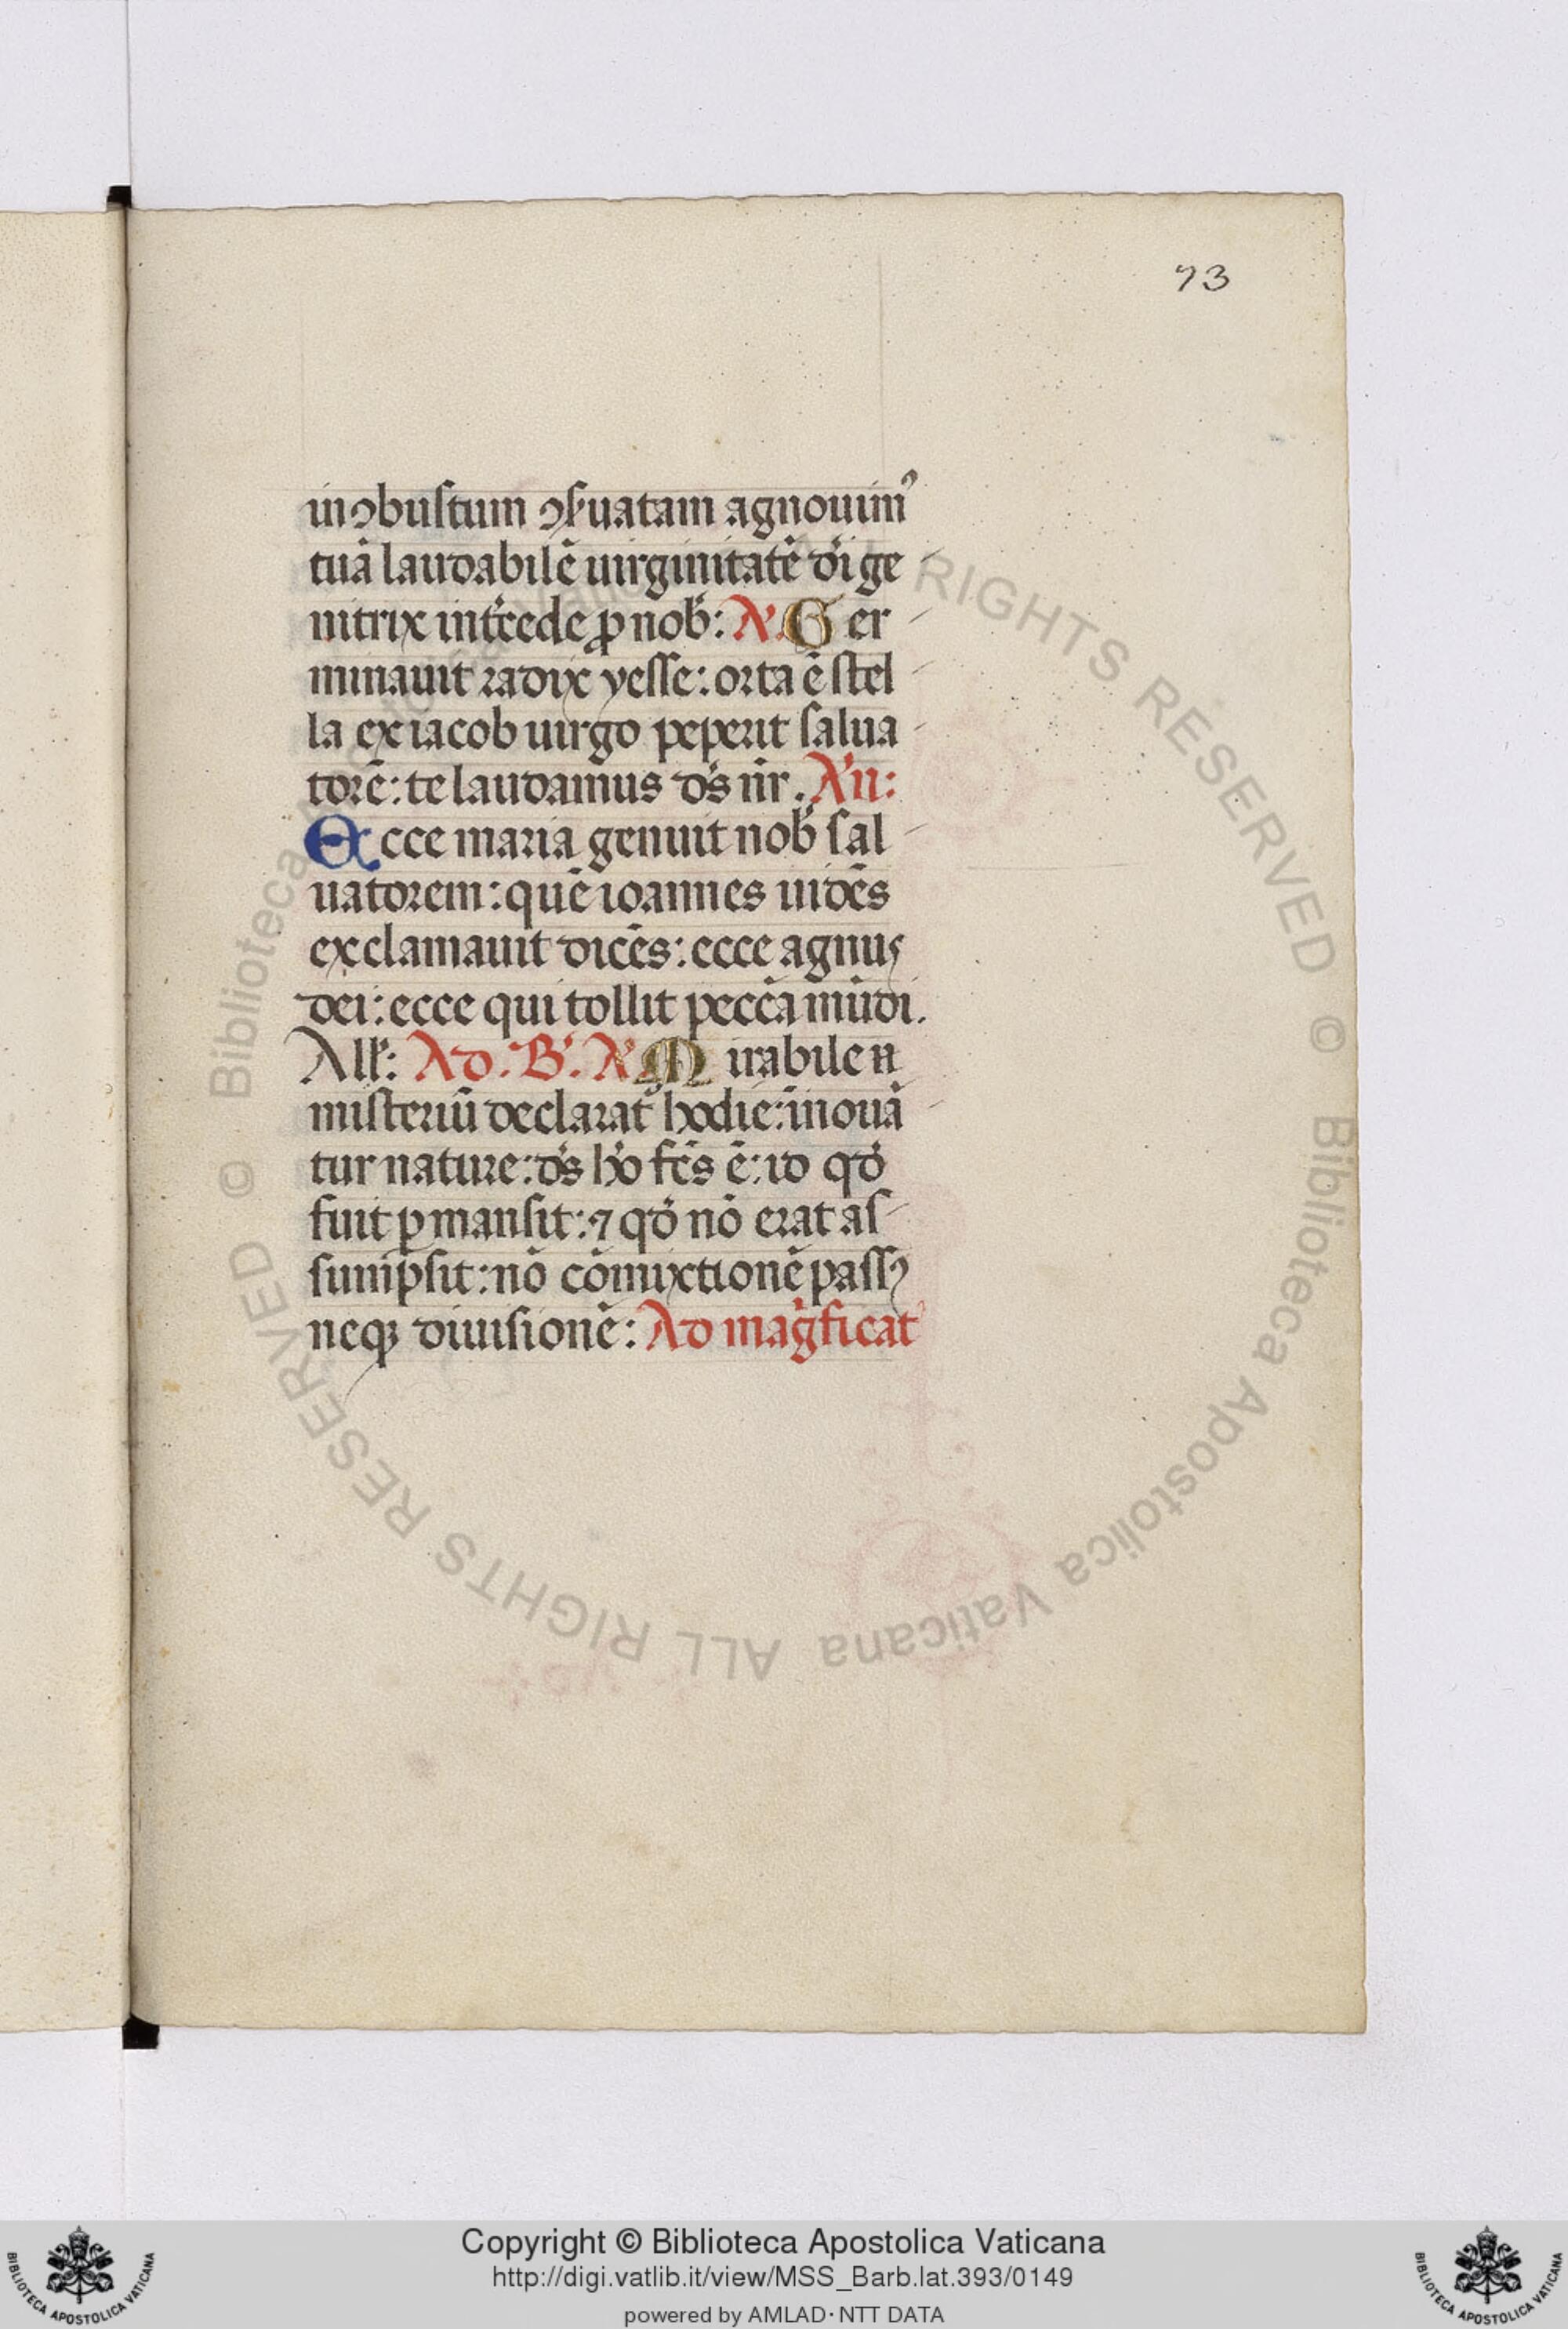 73
inɔbustum ɔs̵uatam agnouim⁹
tuā laudabilē uirginitatē dı̄ ge
nitrix int̄cede ꝓ nob̄: A̕. Ger
minauit radix yesse: orta ē stel
la ex iacob uirgo peperit salua
torē: te laudamus ds̄ nr̄. An̄:
Ecce maria genuit nob̄ sal
uatorem: quē ioannes uidēs
exclamauit dicēs: ecce agnus
dei: ecce qui tollit pecc̄a mūdi.
All̄: Ad. B̕. A̕ Mirabile
misteriū declarat̄ hodie: īnouā
tur nature: ds̄ hō fc̄s ē: id qd̄
fuit ꝑmansit: ⁊ qd̄ nō erat as
sumpsit: nō cōmixtionē pass⁹
neqꝫ diuisionē: Ad maḡficat̄
© Biblioteca Apostolica Vaticana ALL RIGHTS RESERVED © Biblioteca Apostolica Vaticana ALL RIGHTS RESERVED
Copyright © Biblioteca Apostolica Vaticana
http://digi.vatlib.it/view/MSS_Barb.lat.393/0149
powered by AMLAD·NTT DATA
BIBLIOTECA APOSTOLICA VATICANA
BIBLIOTECA APOSTOLICA VATICANA